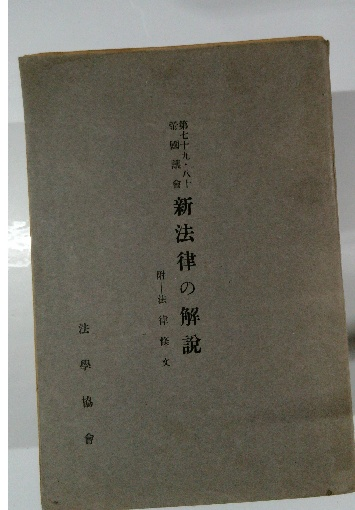 第七十九・八十
帝國議會
新法律の解說
附—法律條文
法學協會